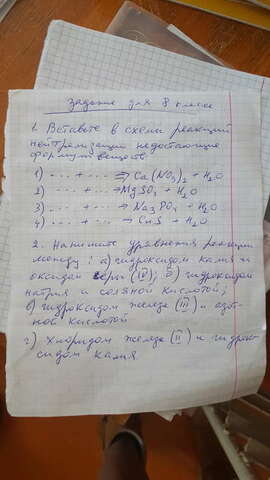 Задание для 8 класса
1. Вставьте в схемы реакций
нейтрализации недостающие
формулы веществ
1) .... + .... => Ca(NO₃)₂ + H₂O
2) .... + ... => MgSO₄ + H₂O
3) .... + ... => Na₃PO₄ + H₂O
4) .... + ... => CuS + H₂O
2. Напишите уравнения реакции
между: а) гидроксидом калия и
оксидом серы (IV); б) гидроксидом
натрия и соляной кислотой;
в) гидроксидом железа (III) и азот-
ной кислотой
г) хлоридом железа (II) и гидрок-
сидом калия